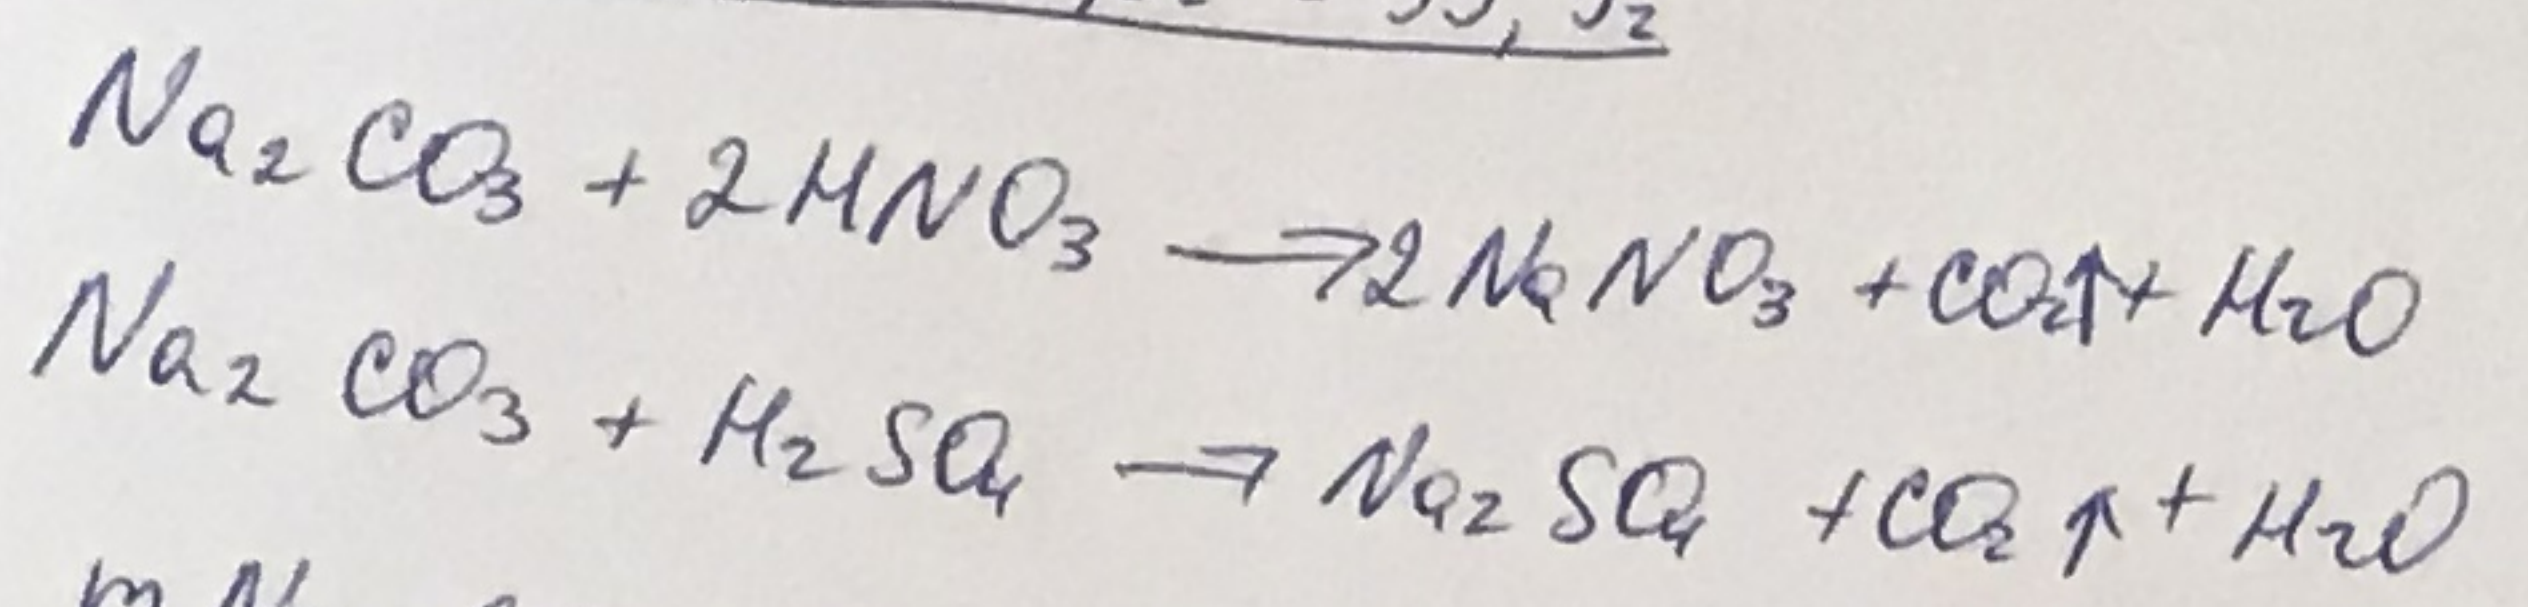 Na₂CO₃ + 2HNO₃ → 2NaNO₃ + CO₂↑ + H₂O
Na₂CO₃ + H₂SO₄ → Na₂SO₄ + CO₂↑ + H₂O